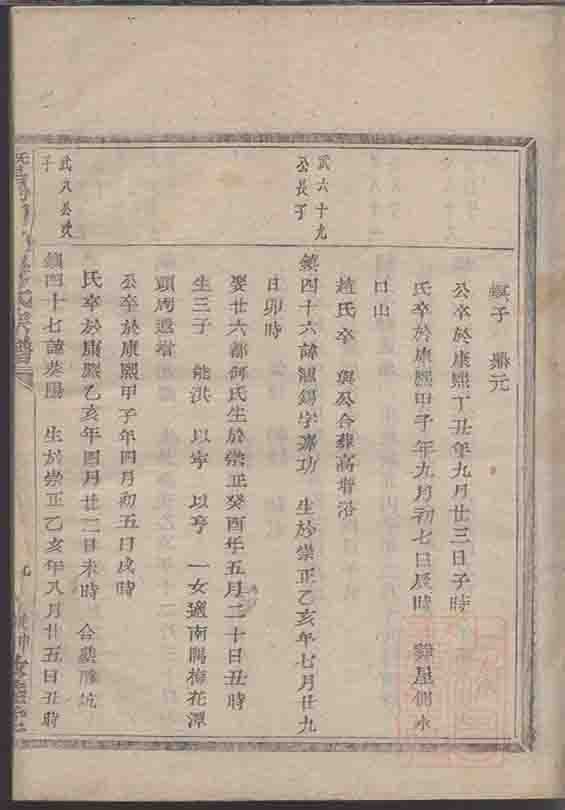 螟子 鼎元
公卒於康熙丁丑年九月廿三日子時
氏卒於康熙甲子年九月初七日辰時
口山
趙氏卒 與公合葬高
武六十九公長子
鎮四十六諱 錫字 功 生於崇正乙亥年七月廿九
日卯時
娶廿六都何氏生於崇正癸酉年五月二十日丑時
生三子 能洪 以寧 以亨 一女適南陽梅花潭
頭周
公卒於康熙甲子年四月初五日戌時
氏卒於康熙乙亥年四月廿二日未時 合葬 坑
武八公次子
鎮四十七諱 陽 生於崇正乙亥年八月廿五日丑時
氏宗譜